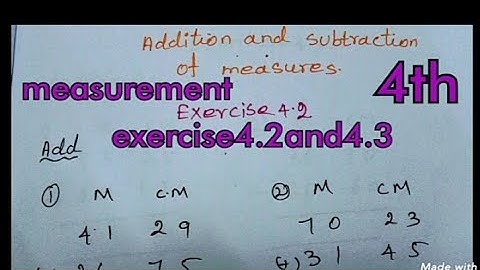 Addition and subtraction
of measures.
measurement 4th
Exercise 4.2
exercise4.2and4.3
Add
① M C.M ② M C M
4 1 2 9 7 0 2 3
(+) 3 1 4 5
Made with